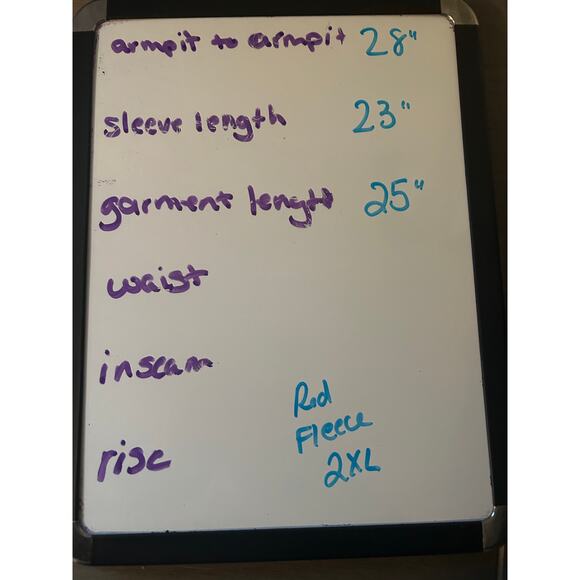 armpit to armpit 28"
sleeve length 23"
garment length 25"
waist
inseam
rise
Red
Fleece
2XL